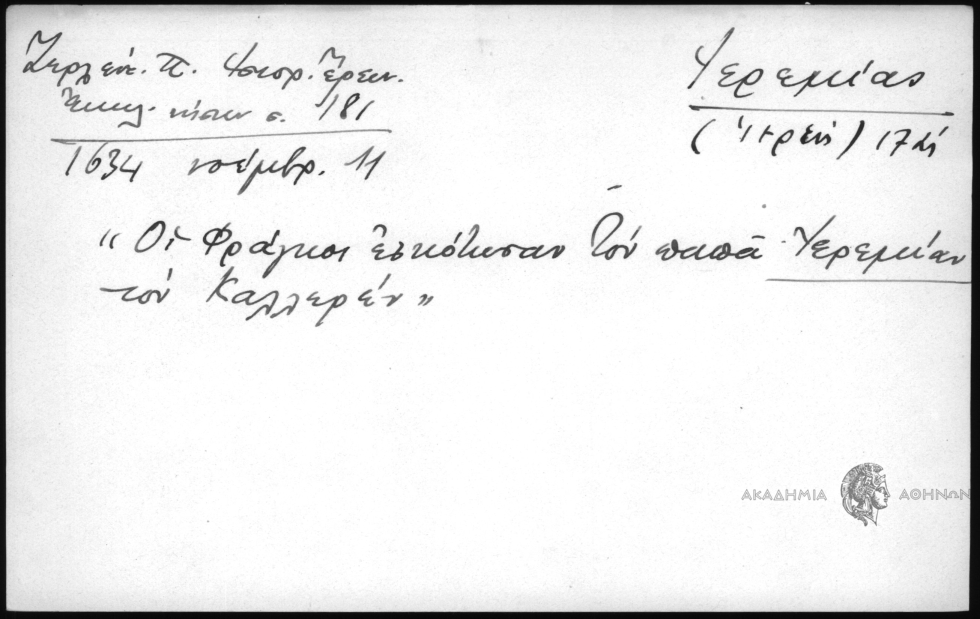 Ζερλέν. Π. Ἱστορ. Ἔρευν.
Ἐκκλ. νήσων σ. 181
1634 νοέμβρ. 11
Ἱερεμίας
(ἱερεύς) 17 αἰ
“Οἱ Φράγκοι ἐσκότωσαν τὸν παπᾶ Ἱερεμίαν
τὸν Καλλεργὴν”
ΑΚΑΔΗΜΙΑ ΑΘΗΝΩΝ